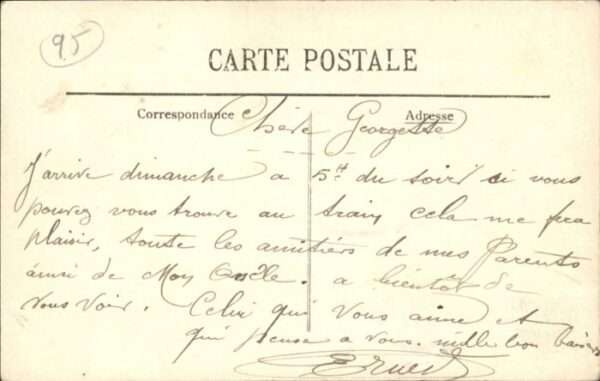 95
CARTE POSTALE
Correspondance
Adresse
Chère Georgette
J'arrive dimanche a 5H du soir si vous
pouvez vous trouve au train cela me fera
plaisir, toute les amitiérs de mes Parents
ainsi de Mon Oncle. a bientôt de
vous voir. Celui qui vous aime et
qui pense a vous. mille bon baisers
Ernest